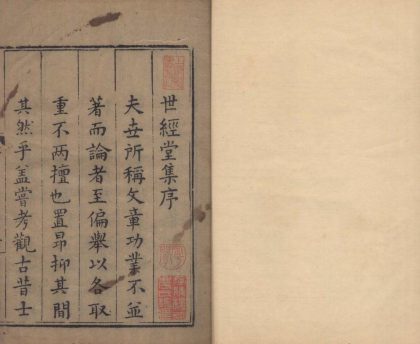 世經堂集序
夫世所稱文章功業不並
著而論者至偏舉以各取
重不兩擅也置昂抑其間
其然乎盖嘗考觀古昔士